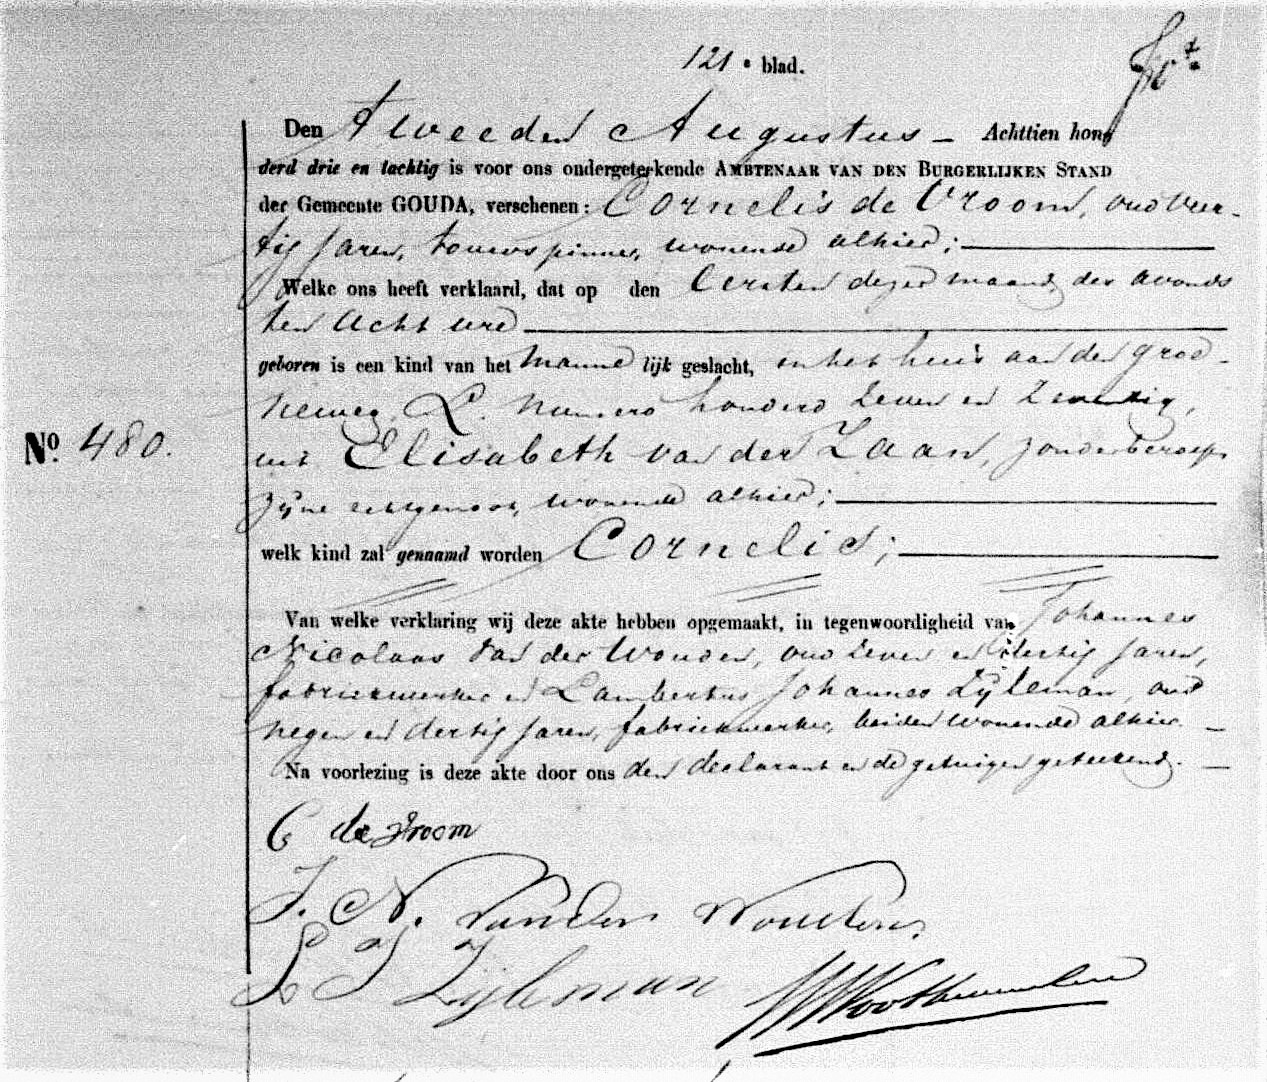 121e blad.
Den Tweeden Augustus – Achttien hon-
derd drie en tachtig is voor ons ondergeteekende AMBTENAAR VAN DEN BURGERLIJKEN STAND
der Gemeente GOUDA, verschenen: Cornelis de Vroom, oud veer-
tig jaren, touwspinner, wonende alhier;
Welke ons heeft verklaard, dat op den Eersten dezer maand des avonds
ten acht ure
geboren is een kind van het Manne lijk geslacht, in het huis aan den
neweg, L. numero honderd zeven en
uit Elisabeth van der Zaan, zonder beroep,
zijne echtgenoot, wonende alhier;
No. 480.
welk kind zal genaamd worden Cornelis;
Van welke verklaring wij deze akte hebben opgemaakt, in tegenwoordigheid van Johannes
Nicolaas van der Wouden, oud zeven en dertig jaren,
fabriekwerker en Lambertus Johannes Zijleman, oud
negen en dertig jaren, fabriekwerker, beiden wonende alhier –
Na voorlezing is deze akte door ons den declarant en de getuigen geteekend. –
C de Vroom
J. N. van der Wouden.
L J Zijleman